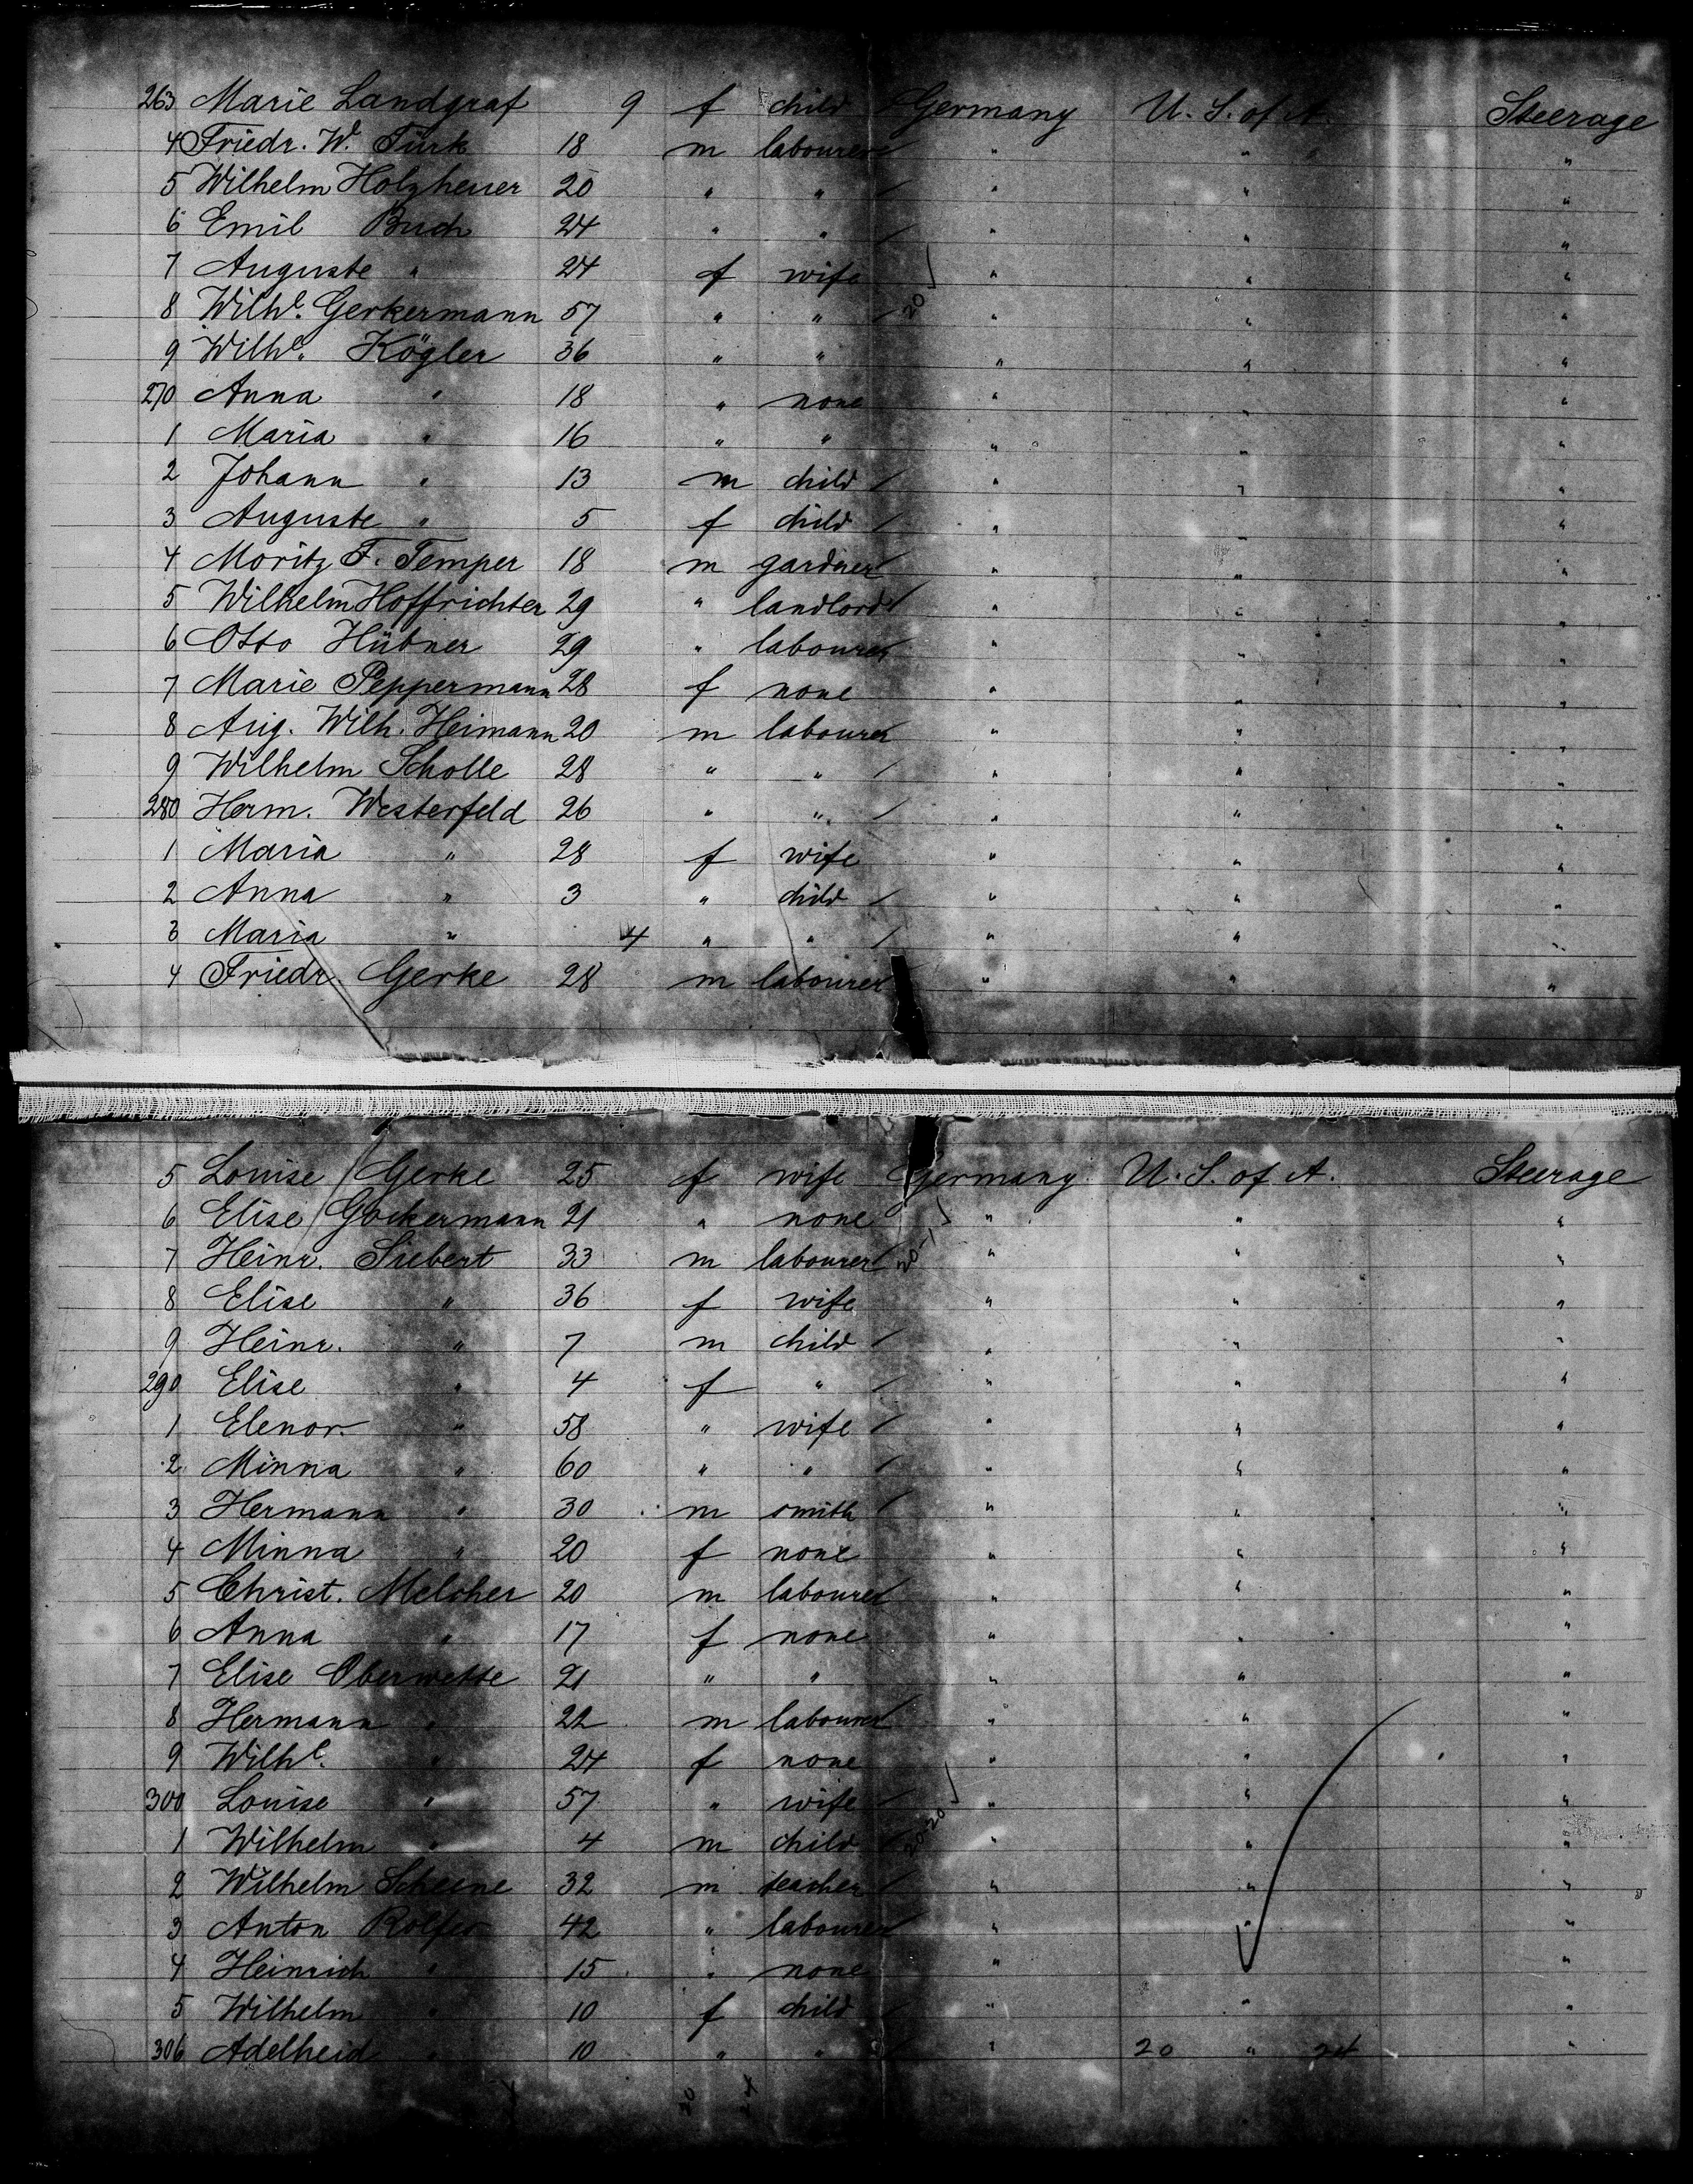 263 Marie Landgraf 9 f child Germany U. S. of A. Steerage
4 Friedr. W. Türk 18 m labourer " " "
5 Wilhelm Holzheuer 20 " " " " "
6 Emil Buch 24 " " " " "
7 Auguste " 24 f wife " " "
8 Wilhe. Gerkermann 57 " " " " "
9 Wilhe. Kögler 36 " " " " "
270 Anna " 18 " none " " "
1 Maria " 16 " " " " "
2 Johann " 13 m child " " "
3 Auguste " 5 f child " " "
4 Moritz F. Temper 18 m gardner " " "
5 Wilhelm Hoffrichter 29 " landlord " " "
6 Otto Hübner 29 " labourer " " "
7 Marie Peppermann 28 f none " " "
8 Aug. Wilh. Heimann 20 m labourer " " "
9 Wilhelm Scholle 28 " " " " "
280 Herm. Westerfeld 26 " " " " "
1 Maria " 28 f wife " " "
2 Anna " 3 " child " " "
3 Maria " 4 " " " " "
4 Friedr. Gerke 28 m labourer " " "
5 Louise Gerke 25 f wife Germany U. S. of A. Steerage
6 Elise Gockermann 21 " none " " "
7 Heinr. Siebert 33 m labourer " " "
8 Elise " 36 f wife " " "
9 Heinr. " 7 m child " " "
290 Elise " 4 f " " " "
1 Elenor. " 58 " wife " " "
2 Minna " 60 " " " " "
3 Hermann " 30 m smith " " "
4 Minna " 20 f none " " "
5 Christ. Melcher 20 m labourer " " "
6 Anna " 17 f none " " "
7 Elise Oberwette 21 " " " " "
8 Hermann " 22 m labourer " " "
9 Wilhe. " 24 f none " " "
300 Louise " 57 " wife " " "
1 Wilhelm " 4 m child " " "
2 Wilhelm Scheene 32 m teacher " " "
3 Anton Rolfes 42 " labourer " " "
4 Heinrich " 15 " none " " "
5 Wilhelm " 10 f child " " "
306 Adelheid " 10 " " " 20 " "